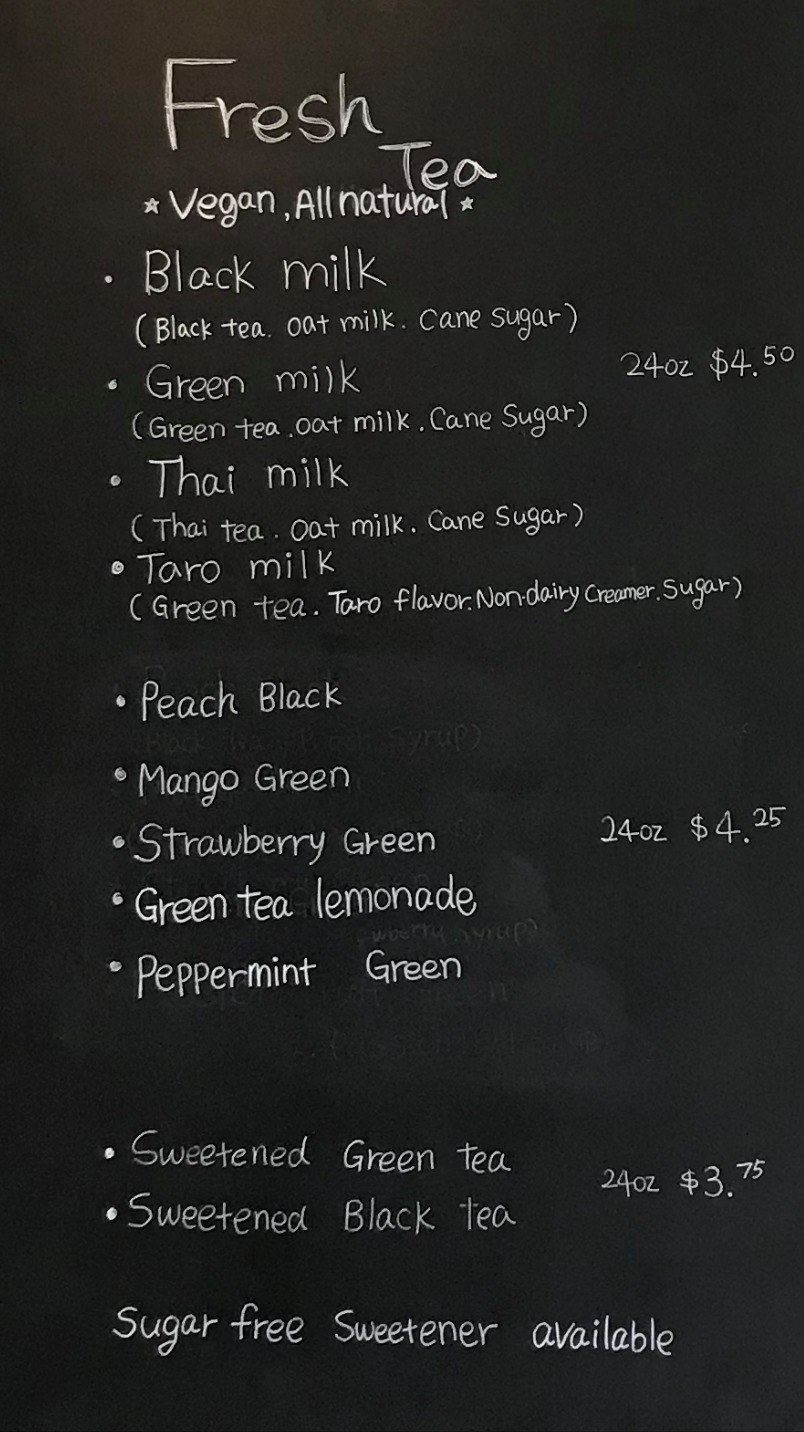 Fresh
Tea
* Vegan, All natural *
• Black milk
(Black tea. Oat milk. Cane Sugar)
24oz $4.50
• Green milk
(Green tea. Oat milk. Cane Sugar)
• Thai milk
(Thai tea. Oat milk. Cane Sugar)
• Taro milk
(Green tea. Taro flavor. Non-dairy Creamer. Sugar)
• Peach Black
• Mango Green
• Strawberry Green
24oz $4.25
• Green tea lemonade
• Peppermint Green
• Sweetened Green tea
24oz $3.75
• Sweetened Black tea
Sugar free Sweetener available